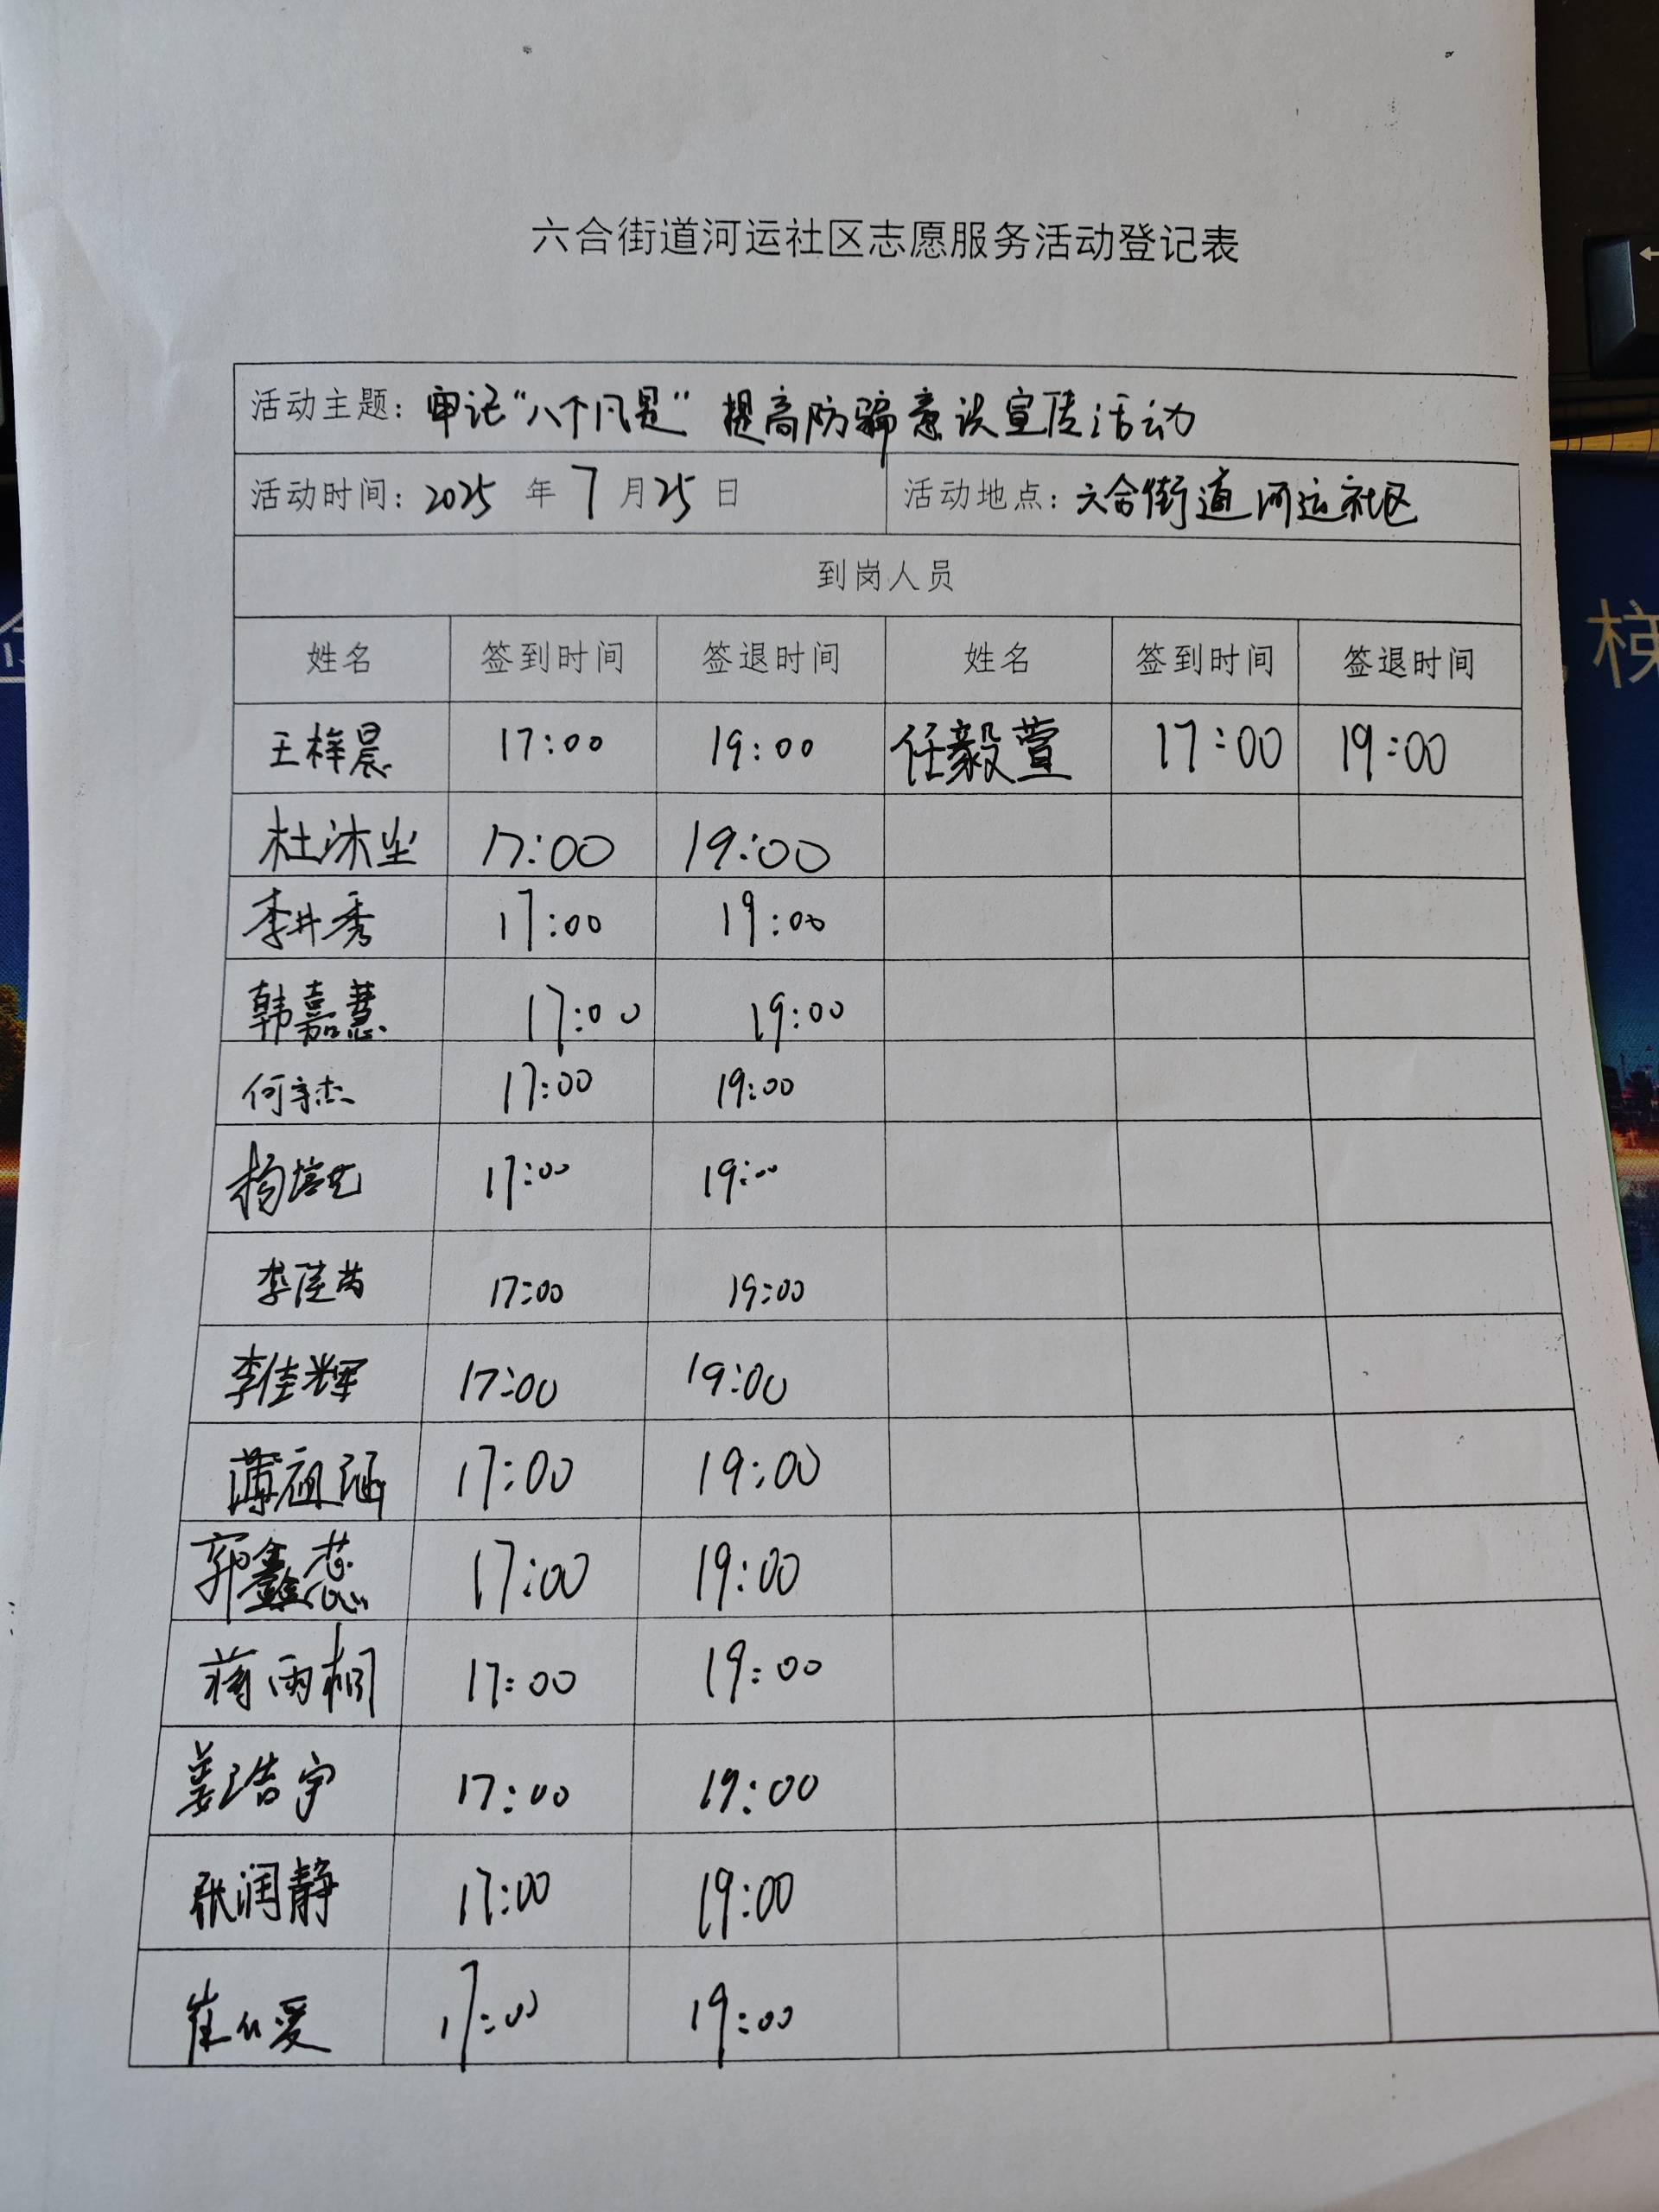 六合街道河运社区志愿服务活动登记表
活动主题：牢记“八个凡是”提高防骗意识宣传活动
活动时间：2025年7月25日 活动地点：六合街道河运社区
到岗人员
姓名 签到时间 签退时间 姓名 签到时间 签退时间
王梓晨 17:00 19:00 任毅萱 17:00 19:00
杜沐尘 17:00 19:00
李井秀 17:00 19:00
韩嘉慧 17:00 19:00
何宗杰 17:00 19:00
杨培先 17:00 19:00
李佳芮 17:00 19:00
李佳辉 17:00 19:00
薄祖涵 17:00 19:00
郭鑫蕊 17:00 19:00
蒋雨桐 17:00 19:00
姜浩宇 17:00 19:00
张润静 17:00 19:00
崔仁爱 17:00 19:00
梯